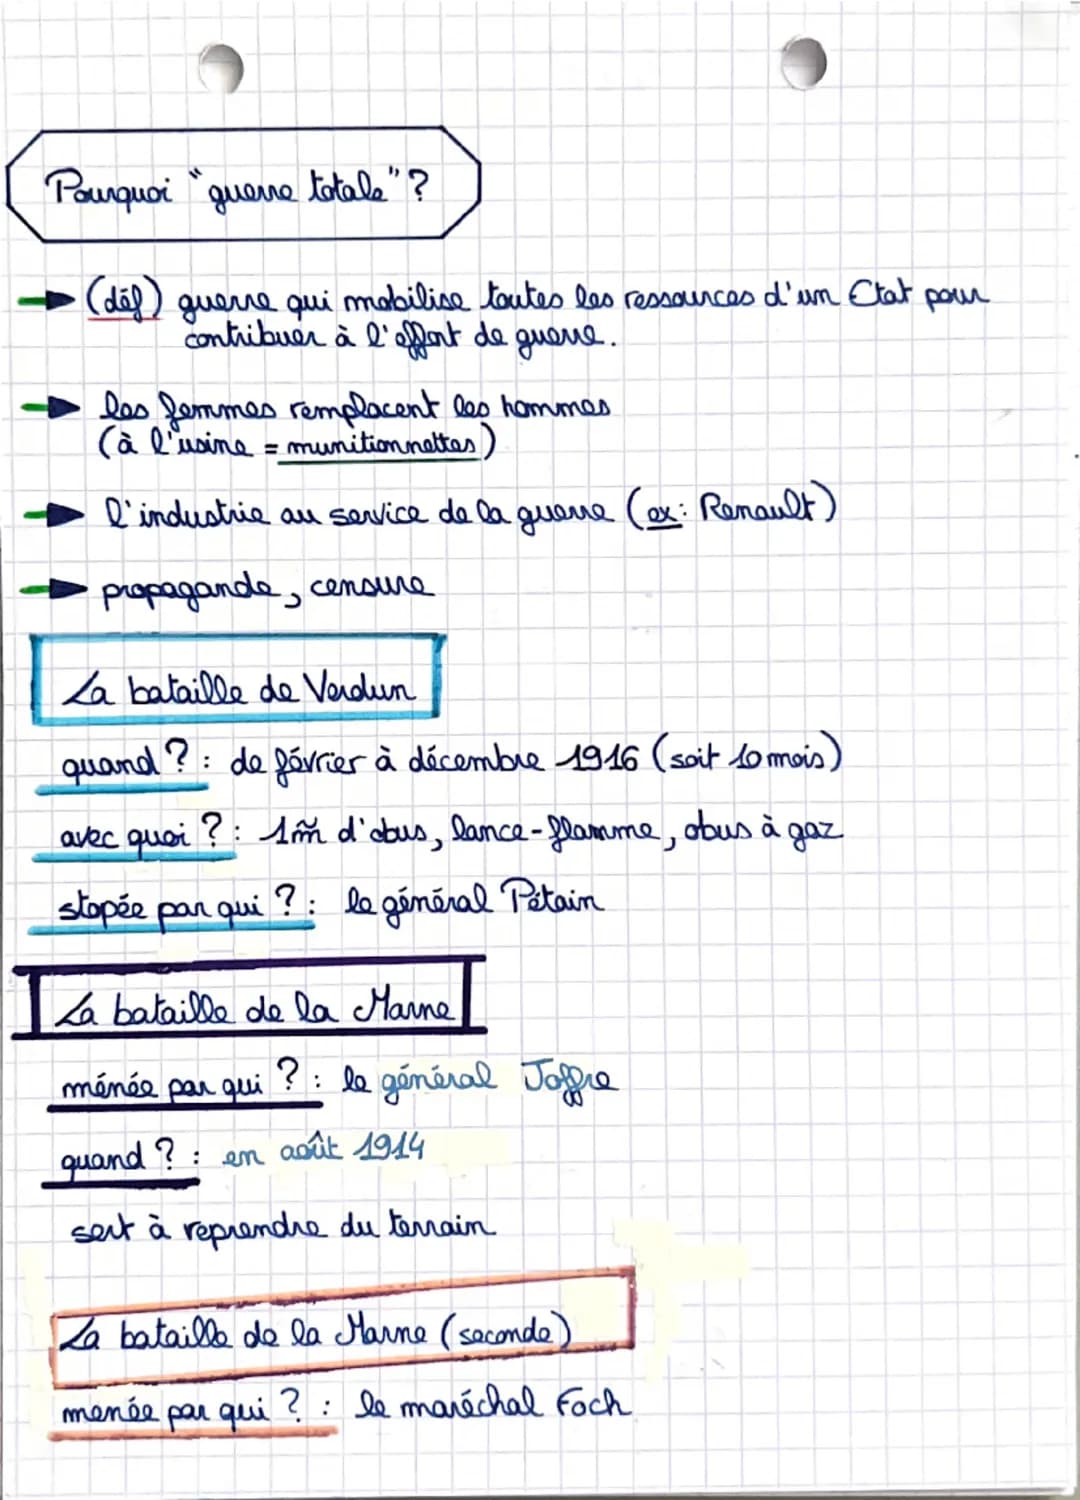 Pourquoi "guerre totale" ?
(déf) guerre qui mobilise toutes les ressources d'un Etat pour
contribuer à l'effort de guerre.
les femmes remplacent les hommes
(à l'usine = munitionnettes)
l'industrie au service de la guerre (ex: Renault)
propagande, censure
La bataille de Verdun
quand ? : de février à décembre 1916 (soit 10 mois)
avec quoi ? : 1m̃ d'obus, lance-flamme, obus à gaz
stopée par qui ? : le général Pétain
La bataille de la Marne
ménée par qui ? : le général Joffre
quand ? : en août 1914
sert à reprendre du terrain
La bataille de la Marne (seconde)
menée par qui ? : le maréchal Foch